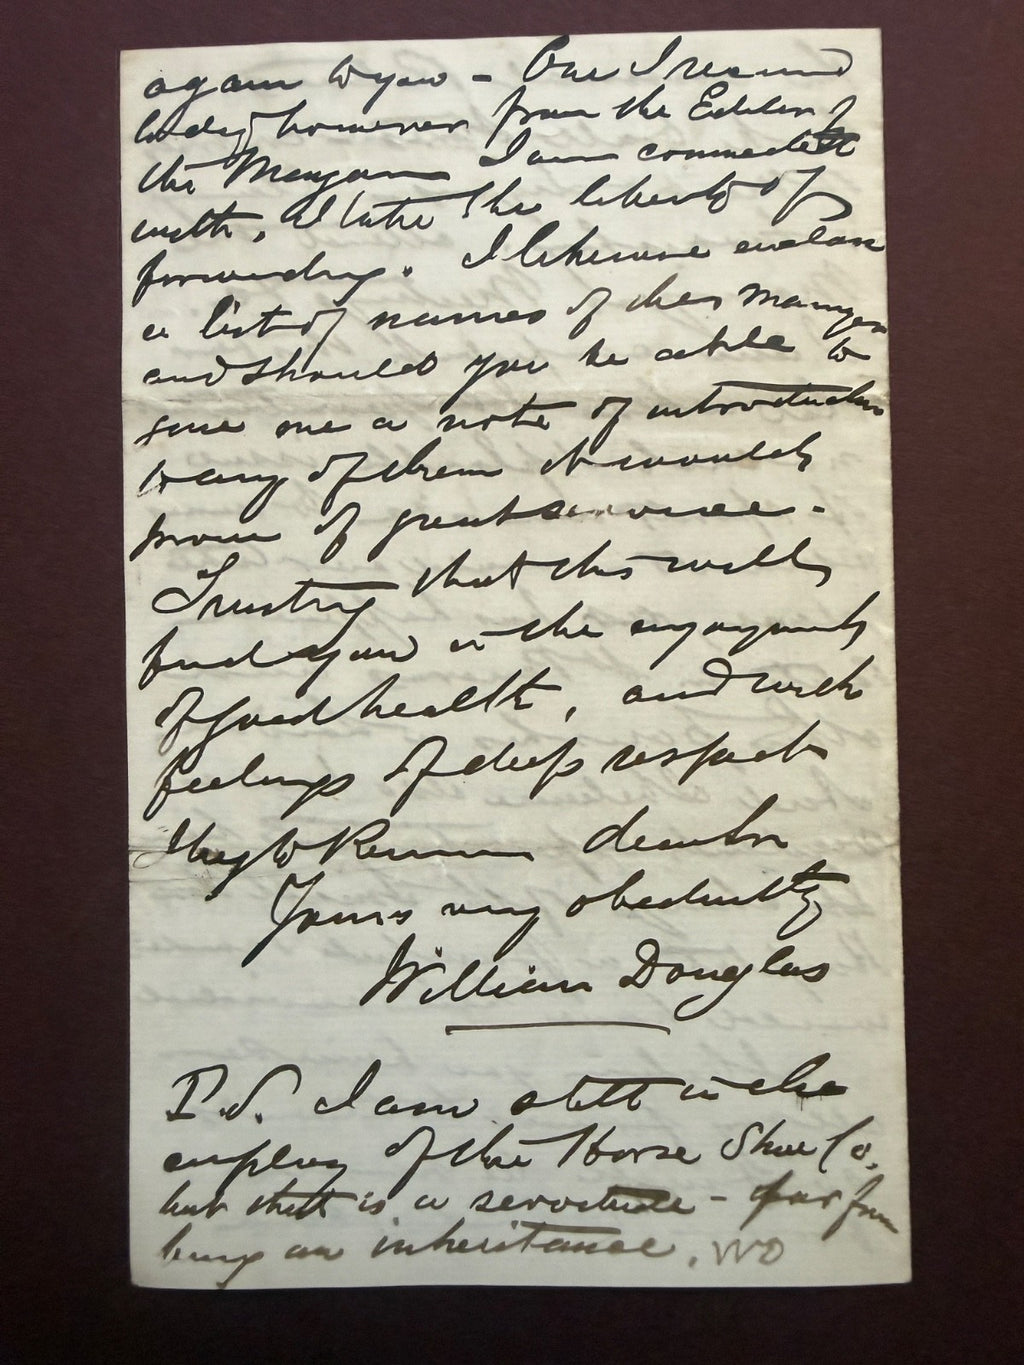 again to you - One I received
today however from the Editor of
the Magazine I am connected
with, I take the liberty of
forwarding. I likewise enclose
a list of names of
and should you be able to
give me a note of introduction
to any of them it would
prove of great service.
Trusting that this will
find you in the enjoyment
of good health, and with
feelings of deep respect
I beg to Remain dear Sir
Yours very obediently
William Douglas
P.S. I am still in the
employ of the Horse Shoe Co.
but that is a servitude - far from
being an inheritance. WD